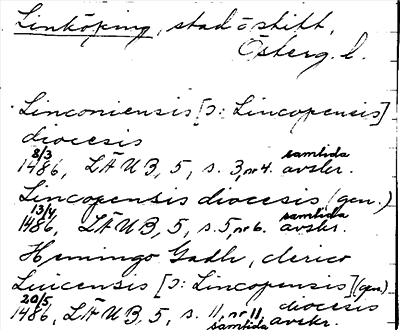 Linköping, stad o stift,
Österg. l.
Linconiensis [ɔ: Lincopensis]
diocesis
8/3 1486, LÄUB, 5, s. 3, nr 4. samtida avskr.
Lincopensis diocesis (gen.)
13/4 1486, LÄUB, 5, s. 5, nr 6. samtida avskr.
Hemingo Gadh, clerico
Lincensis [ɔ: Lincopensis] (gen.) diocesis
20/5 1486, LÄUB, 5, s. 11, nr 11, samtida avskr.